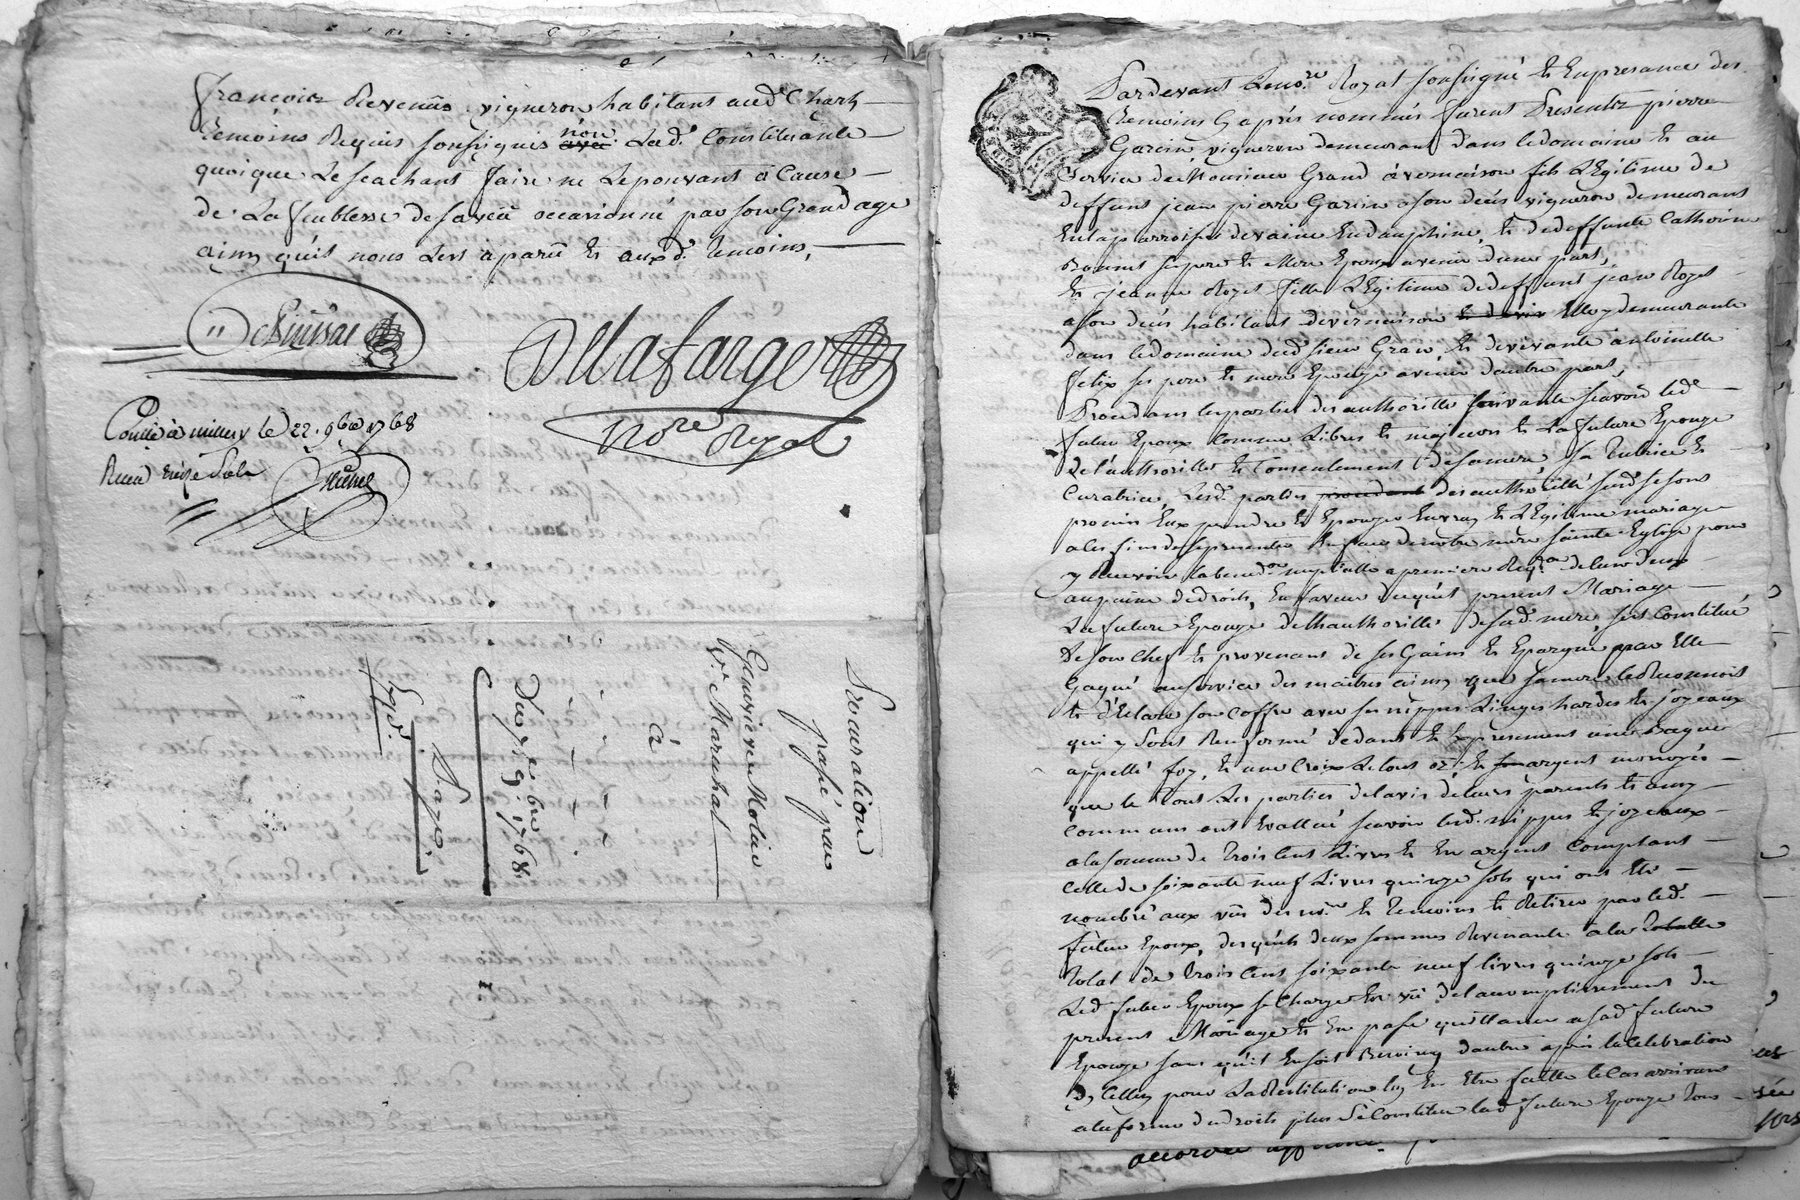 francois Revenus vigneron habitant aud. Charly
temoins Requis soussignés non avec Lad. Constituante
quoique Le scachant faire ne Lepouvant à Cause
de La foiblesse desaveüe occasionné par son Grand age
ainsy qu'il nous Lest àparü et auxd. temoins,
Dellafarge
no.re Royal
Conllé à millery le 22. 9bre 1768
Recu treize sols
Michel
Procuration
passé par
Genevieve Molin
Ve Marechal
à
Du 9e 9bre 1768.
Expd.
Pardevant Leno.re Royal soussigné et Enpresance des
temoins Cy après nommés furent Presents pierre
Garcin vigneron demeurant dans ledomaine et au
service de Monsieur Grand à vernaison fils Légitime de
deffunt jean pierre Garcin asondécés vigneron demeurant
Enlaparroisse de vaine Endauphiné, et dedeffunte Catherine
ses pere et Mere Epoux avenir dune part,
Et jeanne Royet fille Légitime dedeffunt jean Royet
asondécés habitant devernaison Elle y demeurante
dans ledomaine dud. sieur Gran, Et devivante antoinette
felix ses pere et mere Epouze avenir dautre part,
Procedans lesparties des authorittés suivante scavoir led.
futur Epoux comme Libres et majeurs et La future Epouze
de l'authoritté et Consentement desamere, sa tutrice et
Curatrice, Lesd. parties procedant des authoritté susd. se sont
promis Eux prendre et Epouzer Envray et Légitime mariage
ales fins desepresenter Enface denotre mere sainte Eglise pour
y Recevoir labened.on nuptialle apremiere Req.on delun deux
auxpeine dedroits, Enfaveur duquel present Mariage
La future Epouze delhauthoritté desad. mere, sest Constitué
de son Chef et provenant de ses Gains et Epargne par Elle
Gagné auservice des maitres ainsy que samere leReconnoit
et déclare son coffre avec ses nippes Linges hardes et joyeaux
qui y sont Renfermé dedans et Expressement une Bague
appellé foy, et une Croix Letout or, et argent monnoyés
que le tout Les parties delavis deleurs parents et amy
Communs ont Evallué scavoir lesd. nippes et joyeaux
alasomme de trois Cent Livres et En argent Comptant
Celle de soixante neuf Livres quinze sols qui ont Eté
nombré aux vüe des no.re et temoins et Retirés par led.
futur Epoux, desquels deux sommes Revenante ala totalle
total de trois Cent soixante neuf livres quinze sols
Led. futur Epoux se Charge En vüe delaccomplissement du
present Mariage et En passe quittance asad. future
Epouze sans quil Ensoit Besoing dautre après laCelebration
dy Celluy pour LaRestitution luy En Etre faitte leCas arrivant
alaforme dudroits plus seConstitue lad. future Epouze tous